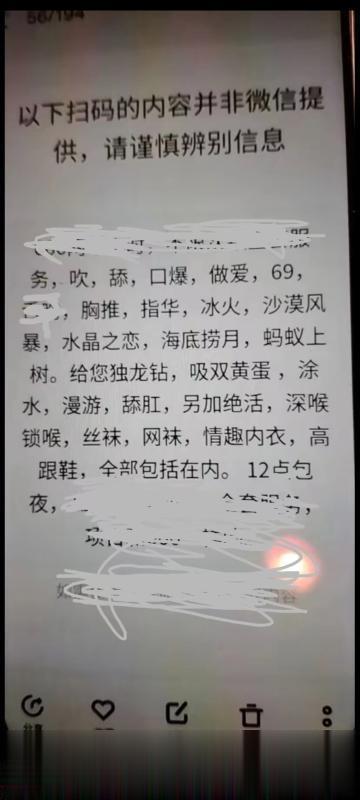 56/194
以下扫码的内容并非微信提
供，请谨慎辨别信息
服
务，吹，舔，口爆，做爱，69，
胸推，指华，冰火，沙漠风
暴，水晶之恋，海底捞月，蚂蚁上
树。给您独龙钻，吸双黄蛋，涂
水，漫游，舔肛，另加绝活，深喉
锁喉，丝袜，网袜，情趣内衣，高
跟鞋，全部包括在内。 12点包
夜，
全套服务，
内容